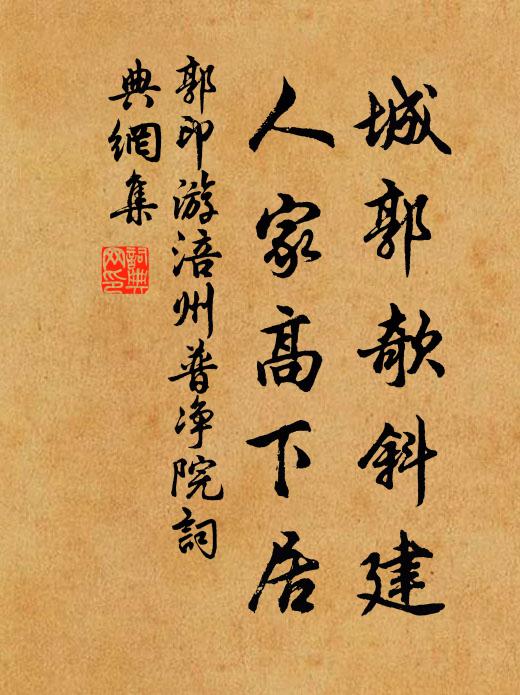 城郭欹斜建
人家高下居
郭印游涪州普净院詞
典網集
詞典网印